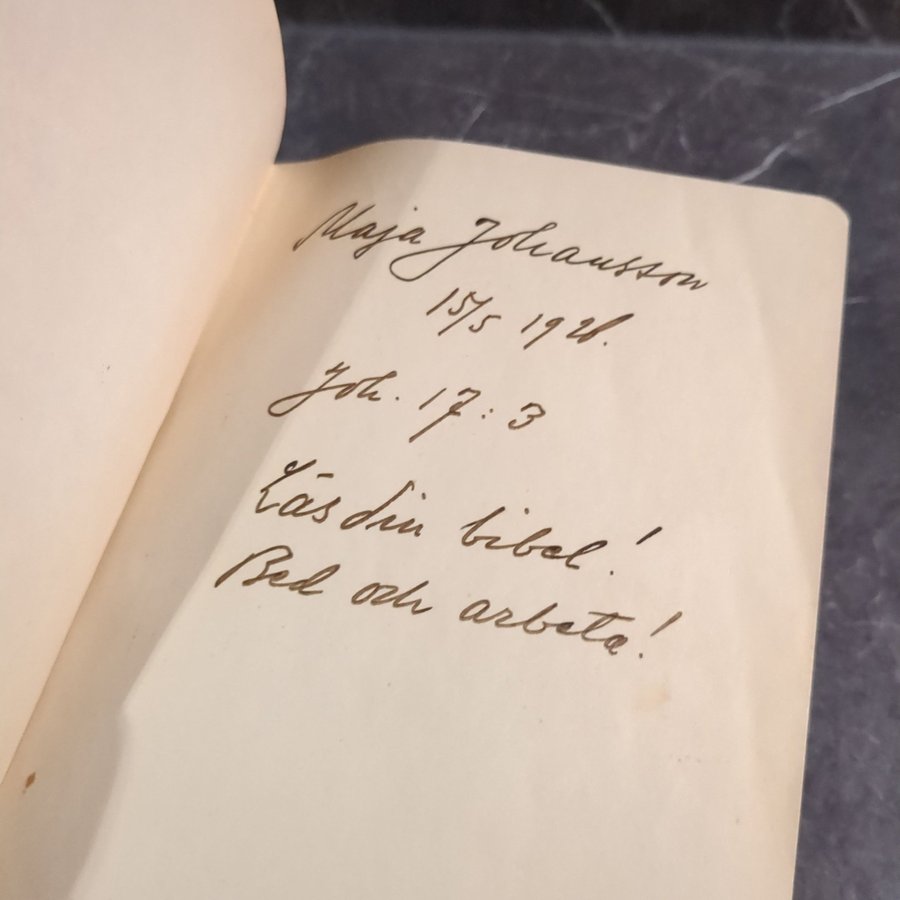 Maja Johansson
15/5 1921.
Joh. 17:3
Läs din bibel!
Bed och arbeta!